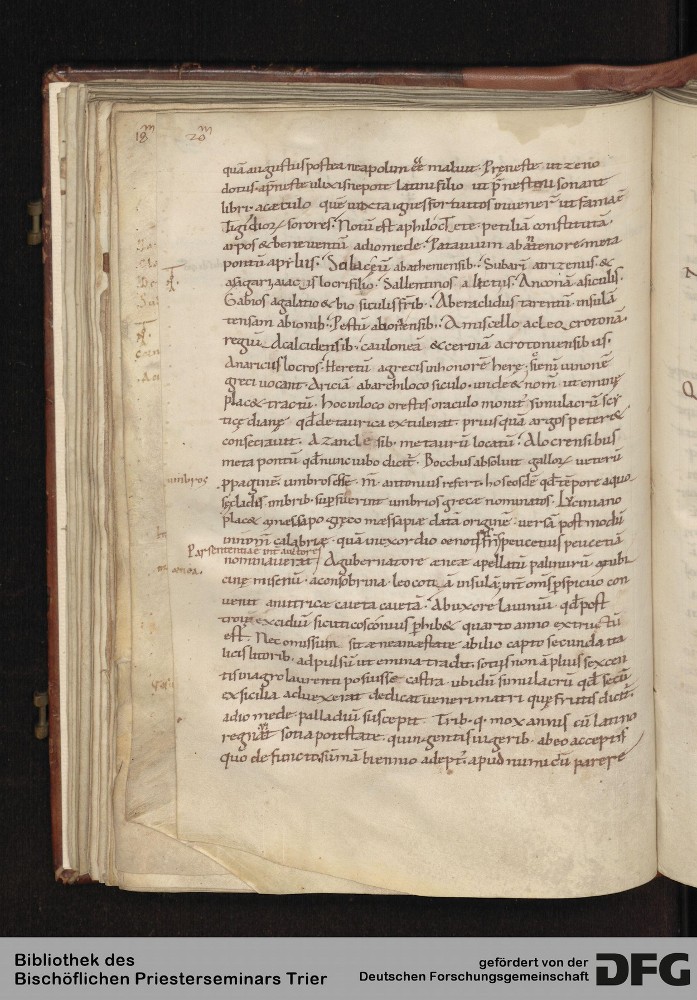 18 m 20 m
quā augustus postea neapolim eē maluit. Pręneste ut zeno
dotus. ap̄neste ulixis nepote latini filio ut p̄nestini sonant
libri. acęculo quē iuxta ignes fortuitos invener̄ ut fama ē
Digidiorꝝ sorores. Notū est a philoctete petiliā constitutā
arpos & beneventū a diomede. Patavium ab antenore. meta
pontū a pyliis. Scilaceū ab atheniensib. Subarī a trizenus &
a sagari aiacis locri filio. Sallentinos a lictus. Anconā a siculis.
Gabios a galatio & bio siculis fr̄ib. Ab eraclidis tarentū. insulā
tensam ab ionib. Pestū a doriensib. A miscello ac leo crotonā.
regiū. A calcidensib. cauloneā & cerinā a crotoniensib us.
A naricus locros. Heretū a grecis in honorē herę sic enī iunonē
greci vocant. Ariciā ab archiloco siculo. unde & nom̄ ut eminę
plac& tractū. Hoc in loco orestes oraculo monit simulacrū scy
ticę dianę qd̄ de taurica extulerat. prius quā argos peter&
consecravit. A zancle sib. metaurū locatū. A locrensibus
meta pontū qd̄ nunc vibo dicit. Bocchus absolvit gallorꝝ veterū
ppaginē umbros eē. m̄. antonius refert. hos eosdē qd̄ tēpore aquo
sę cladis imbrib. supfuerint umbrios grece nominatos. Lyciniano
plac& a messapo gręco messapiae datā originē. versā post modū
in nom̄ calabrię. quā in exordio oenotri fr̄ peucetius peucetiā
nominaverat. A gubernatore aeneae apellatū palinurū. a tubi
cine misenū. a consobrina leocotiā insulā. int̄ om̄s p̄spicuo con
venit a nutrice caieta caietā. Ab uxore laviniū. qd̄ post
troię excidiū sicuti cosconius p̄hib& quarto anno extructū
est. Nec omissum sit aeneam aestate ab ilio capto secunda ita
licis litorib. adpulsū ut emina tradit. sotiis non āplius sexcen
tis in agro laurenti posuisse castra. ubi dū simulacrū qd̄ secū
ex sicilia advexerat dedicat veneri matri quę frutis dicit.
a diomede palladiū suscepit. Trib. q. mox annis cū latino
regnāt socia potestate. quingentis iugerib. ab eo acceptis
quo defuncto. sūmā biennio adept. apud numicū parere
umbros
Par sententiae int̄ auctores
Bibliothek des
Bischöflichen Priesterseminars Trier
gefördert von der
Deutschen Forschungsgemeinschaft
DFG